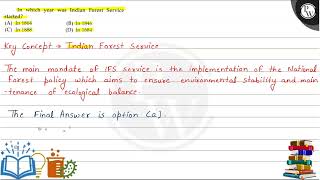 In which year was Indian Forest Service
started?
(A) In 1864 (B) In 1946
(C) In 1888 (D) In 1884
Key Concept → Indian Forest Service
The main mandate of IFS service is the implementation of the National
Forest policy which aims to ensure environmental stability and main
-tenance of ecological balance.
The Final Answer is option (a).